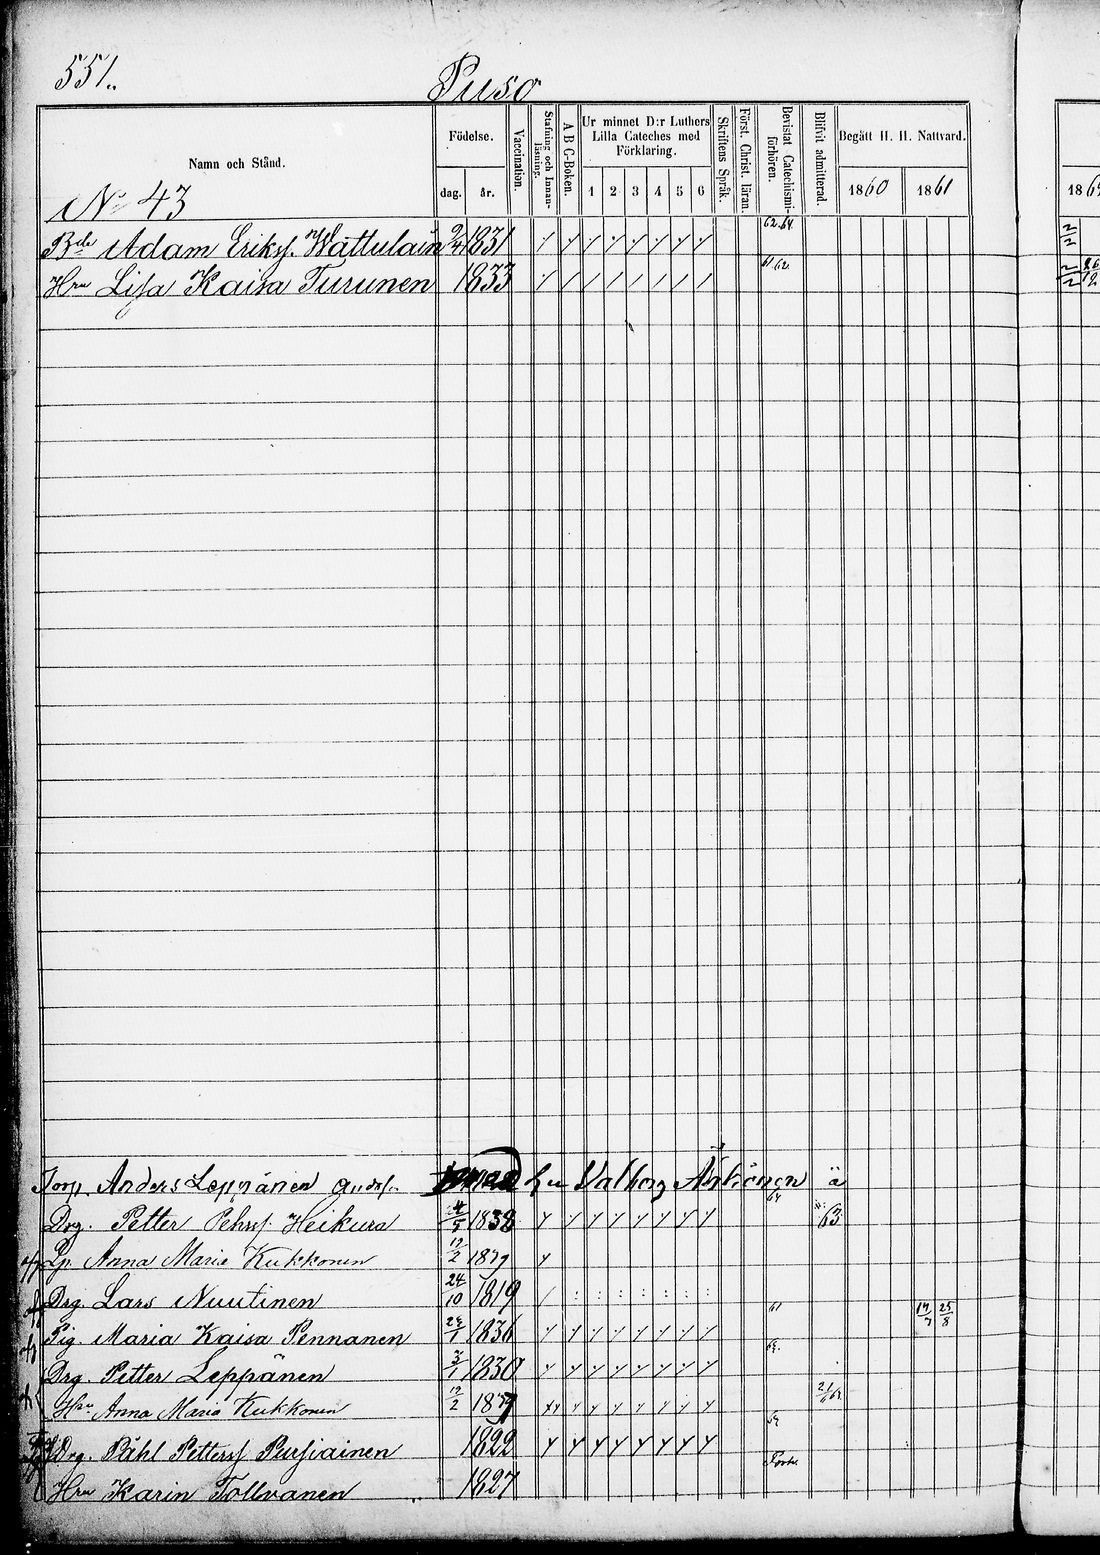 551.
Puso
Namn och Stånd.
Födelse.
dag. år.
Vaccination.
Stafning och Innanläsning.
A B C-Boken.
Ur minnet D:r Luthers
Lilla Cateches med
Förklaring.
1 2 3 4 5 6
Skriftens Språk.
Först. Christ. läran.
Bevistat Catechismiförhören.
Blifvit admitterad.
Begått H. H. Nattvard.
1860 1861
No 43
Adam Erikss. Wattulain 2/4 1831 62.64.
Hru Lisa Kaisa Turunen 1833 61.62.
Torp. Anders Leppänen Hu Valborg
Drg. Petter Pehrss. Heikura 4/5 1838 64 63
Anna Maria Kukkonen 12/2 1839
Drg. Lars Nuutinen 24/10 1819
Pig Maria Kaisa Pennanen 1836 61 14/7 25/8
Drg. Petter Leppänen 3/1 1830
Hru Anna Maria Kukkonen 12/2 1839
Drg. Påhl Petterss Pursiainen 1822
Hru Karin Tollvanen 1827